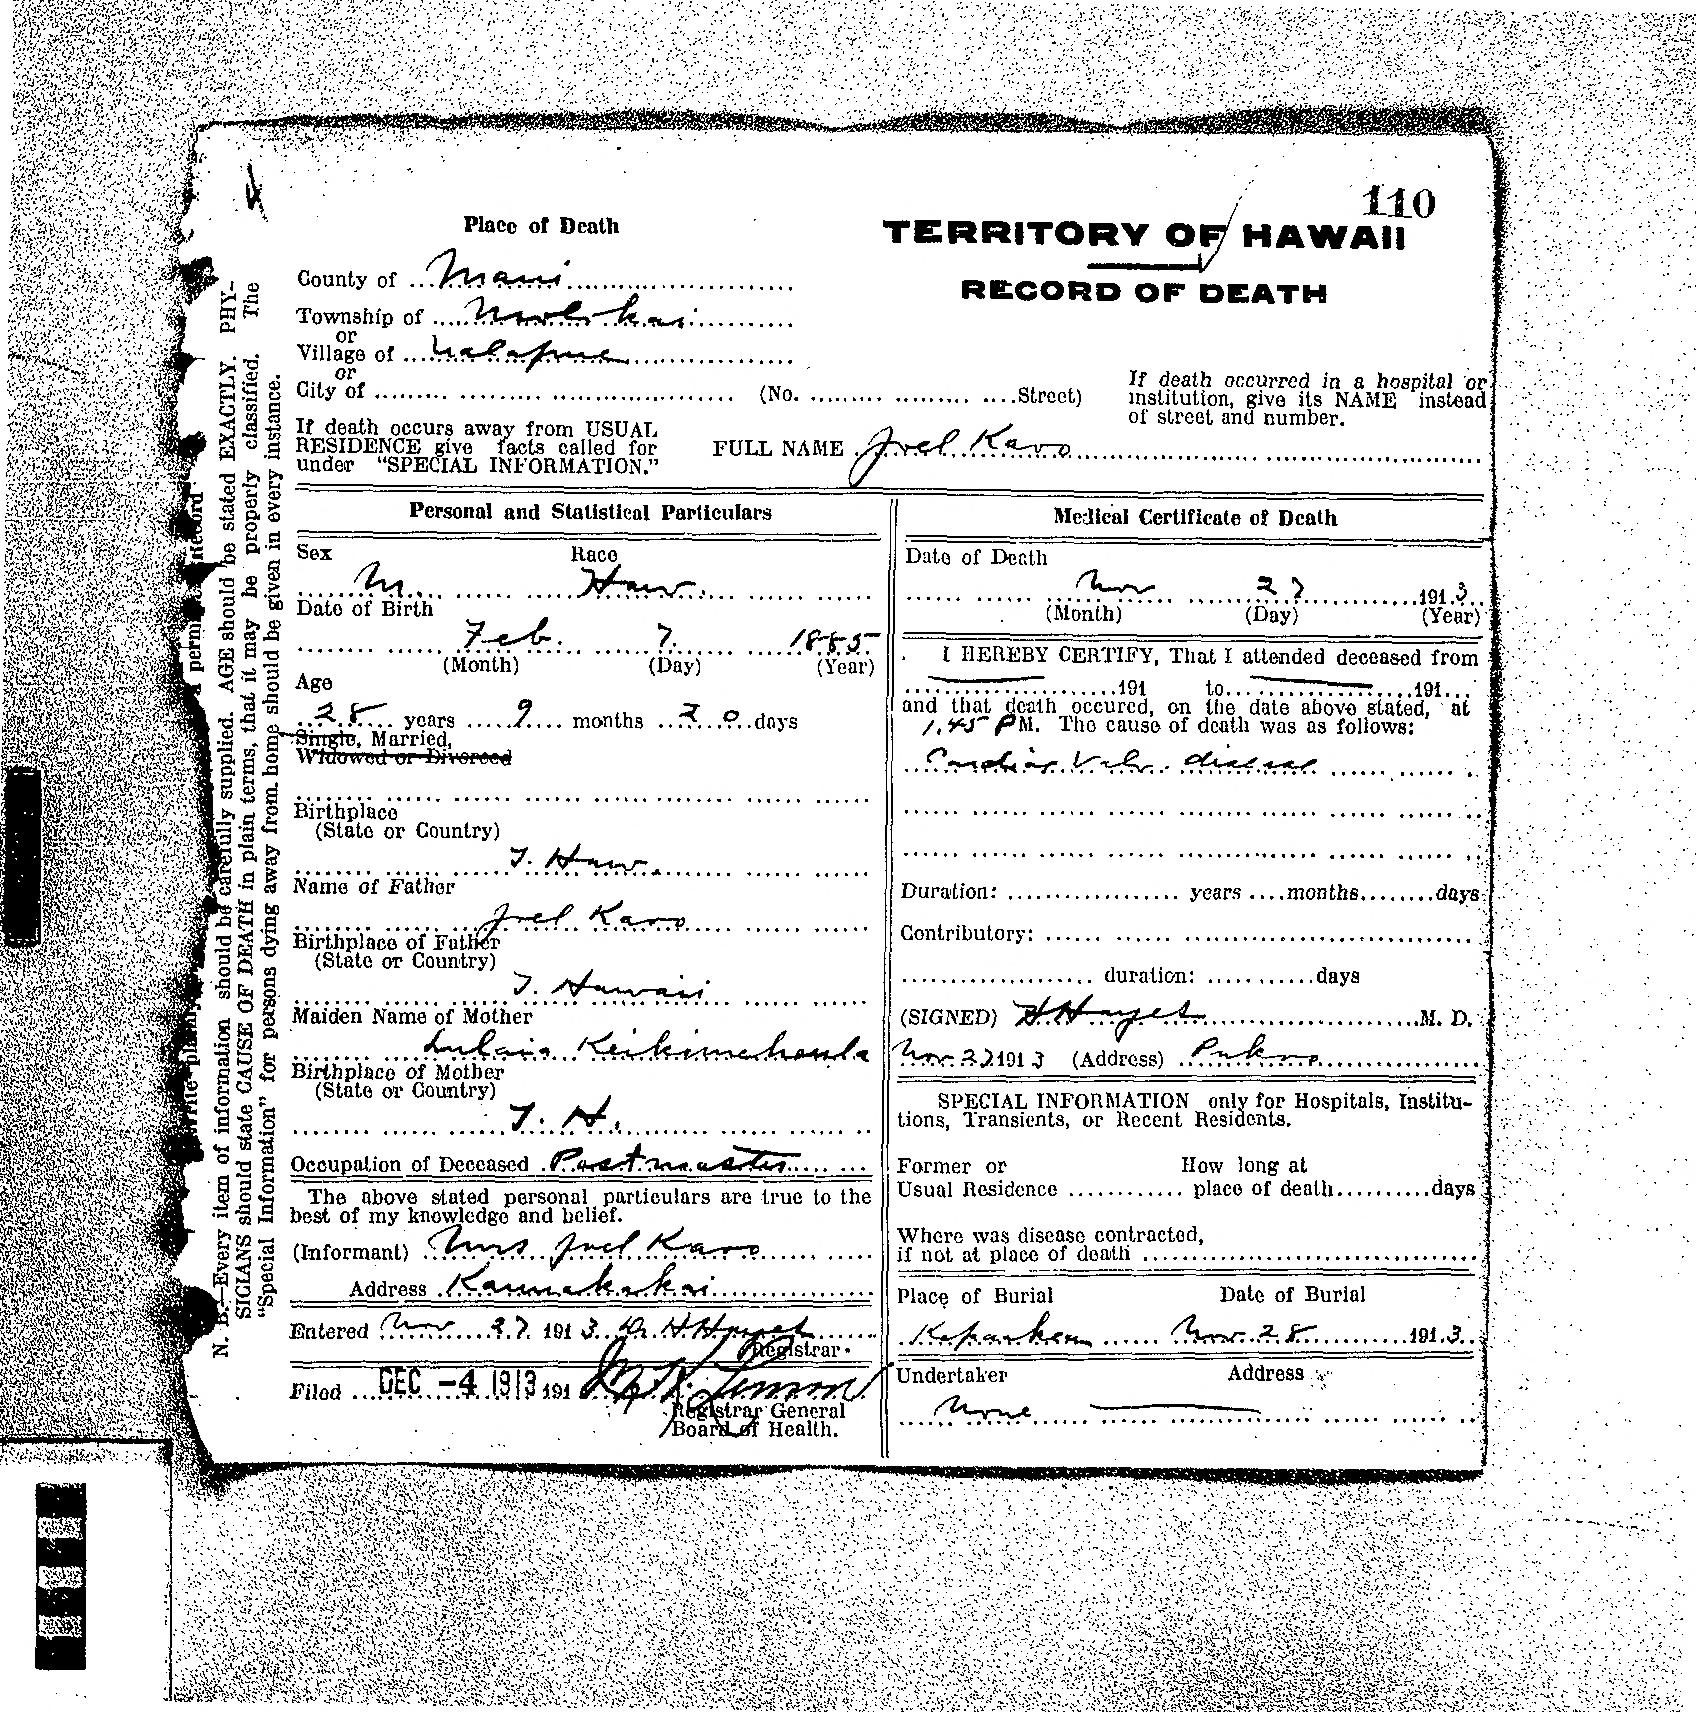 110
Place of Death
TERRITORY OF HAWAII
RECORD OF DEATH
County of Maui
Township of Molokai
or
Village of Ualapue
or
City of (No. Street)
If death occurred in a hospital or
institution, give its NAME instead
of street and number.
If death occurs away from USUAL
RESIDENCE give facts called for
under "SPECIAL INFORMATION."
FULL NAME Joel Kavo
Personal and Statistical Particulars
Sex Race
M. Haw.
Date of Birth
Feb. 7. 1885
(Month) (Day) (Year)
Age
28 years 9 months 20 days
Single, Married,
Widowed or Divorced
Birthplace
(State or Country)
T. Haw.
Name of Father
Joel Kavo
Birthplace of Father
(State or Country)
T. Hawaii
Maiden Name of Mother
Birthplace of Mother
(State or Country)
T. H.
Occupation of Deceased Postmaster
The above stated personal particulars are true to the
best of my knowledge and belief.
(Informant) Mrs Joel Kavo
Address Kaunakakai
Entered Nov 27 1913 Dr. H Hayes
Registrar.
Filed DEC -4 1913 191
Registrar General
Board of Health.
Medical Certificate of Death
Date of Death
Nov 27 1913
(Month) (Day) (Year)
I HEREBY CERTIFY, That I attended deceased from
191 to 191
and that death occured, on the date above stated, at
1.45 PM. The cause of death was as follows:
Cardiac Valv. disease
Duration: years months days
Contributory:
duration: days
(SIGNED) H Hayes M. D.
Nov 27 1913 (Address) Pukoo
SPECIAL INFORMATION only for Hospitals, Institu-
tions, Transients, or Recent Residents.
Former or How long at
Usual Residence place of death days
Where was disease contracted,
if not at place of death
Place of Burial Date of Burial
Nov 28 1913
Undertaker Address
None
N. B.—Every item of information should be carefully supplied. AGE should be stated EXACTLY. PHY-
SICIANS should state CAUSE OF DEATH in plain terms, that it may be properly classified. The
"Special Information" for persons dying away from home should be given in every instance.